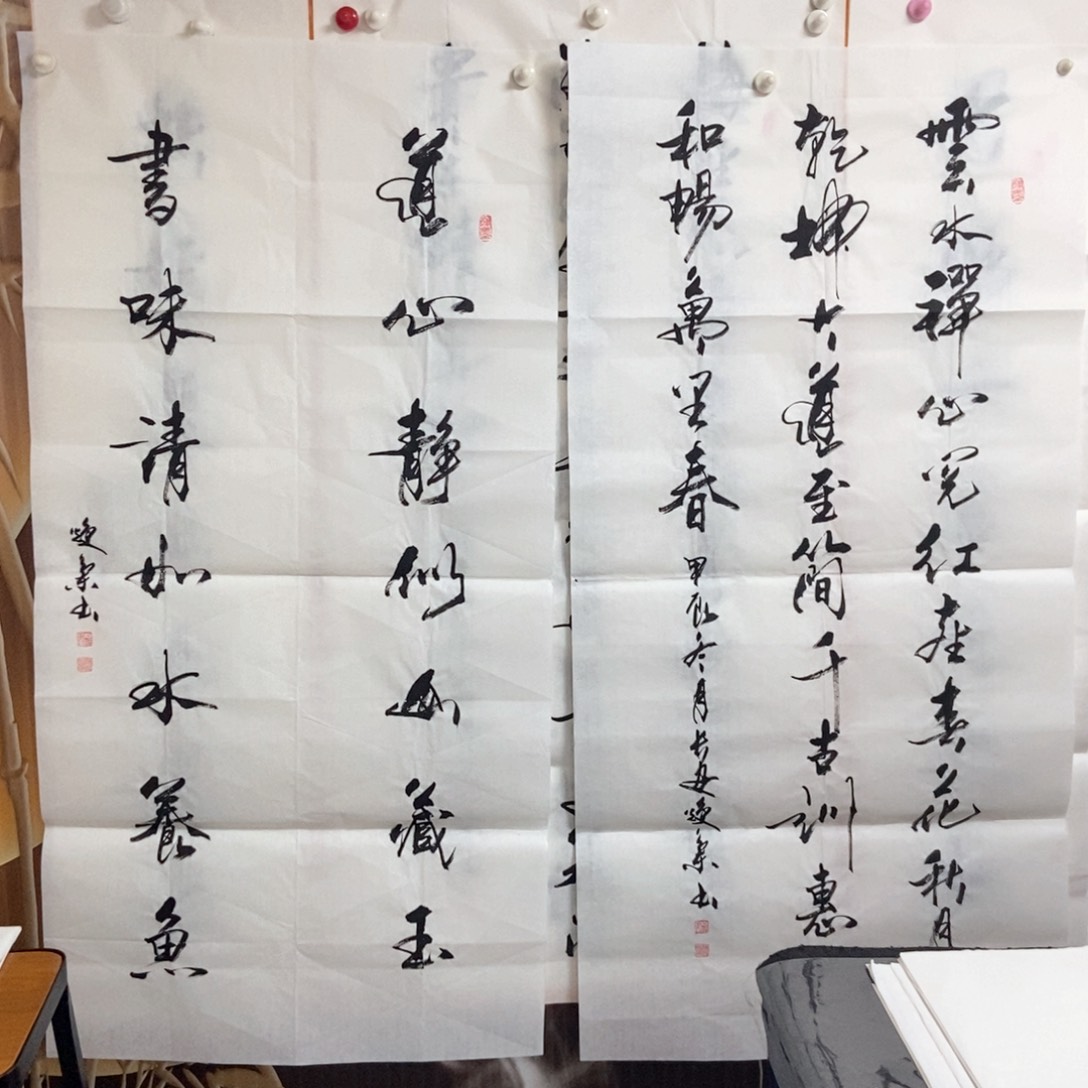 雲水禪心紅塵春花秋月
乾坤大道至簡千古訓惠
和暢萬里春
甲辰冬月長安煥書
道心靜似山藏玉
書味清如水養魚
煥書